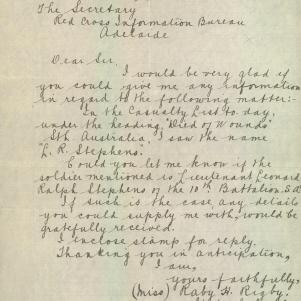 The Secretary
Red Cross Information Bureau
Adelaide
Dear Sir,
I would be very glad if
you could give me any information
in regard to the following matter:-
In the Casualty List to-day,
under the heading, "Died of Wounds"
Sth. Australia, I saw the name
"L. R. Stephens."
Could you let me know if the
soldier mentioned is Lieutenant Leonard
Ralph Stephens of the 10th Battalion. S.A
If such is the case any details
you could supply me with, would be
gratefully received.
I enclose stamp for reply.
Thanking you in anticipation,
I am,
yours faithfully,
(Miss) Raby H. Rigby.